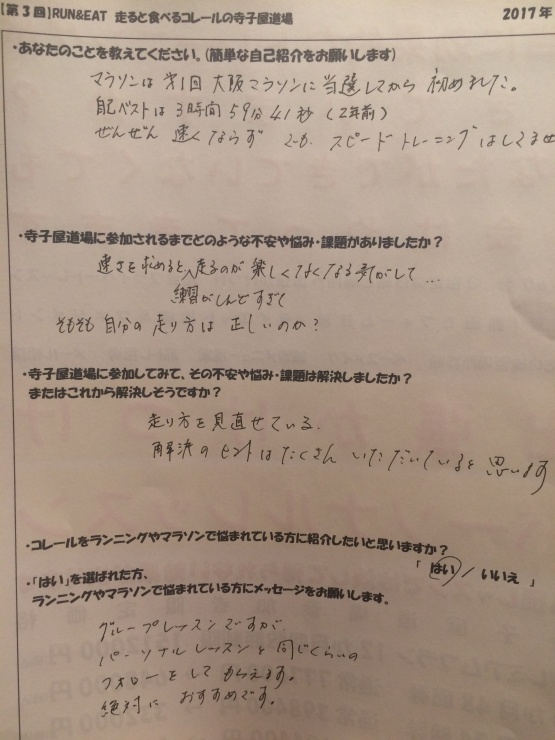 【第3回】RUN&EAT 走ると食べるコレールの寺子屋道場 2017年
・あなたのことを教えてください。(簡単な自己紹介をお願いします)
マラソンは第1回大阪マラソンに当選してから初めました。
自己ベストは3時間59分41秒(2年前)
ぜんぜん速くならず でも、スピードトレーニングはしてませ
・寺子屋道場に参加されるまでどのような不安や悩み・課題がありましたか?
速さを求めると、走るのが楽しくなくなる気がして…
練習がしんどすぎて
そもそも自分の走り方は正しいのか?
・寺子屋道場に参加してみて、その不安や悩み・課題は解決しましたか?
またはこれから解決しそうですか?
走り方を見直せている。
解決のヒントはたくさんいただいていると思います
・コレールをランニングやマラソンで悩まれている方に紹介したいと思いますか?
「はい/いいえ」
・「はい」を選ばれた方、
ランニングやマラソンで悩まれている方にメッセージをお願いします。
グループレッスンですが、
パーソナルレッスンと同じくらいの
フォローをしてもらえます。
絶対におすすめです。